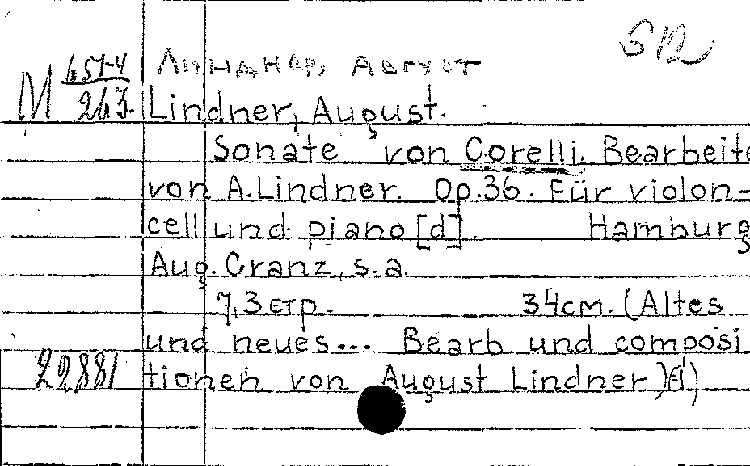 512
М 651-4 Линднер, Август
263. Lindner, August.
Sonate von Corelli. Bearbeite
von A. Lindner. Op. 36. Für violon-
cell und piano [d]. Hamburg
Aug. Cranz, s. a.
7,3 стр. 34cm. (Altes
und neues... Bearb und composi
22881 tionen von August Lindner)